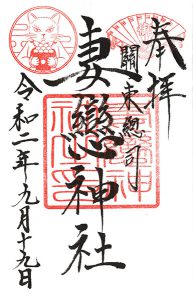 奉拝
關東總司
妻戀神社
令和二年九月十九日